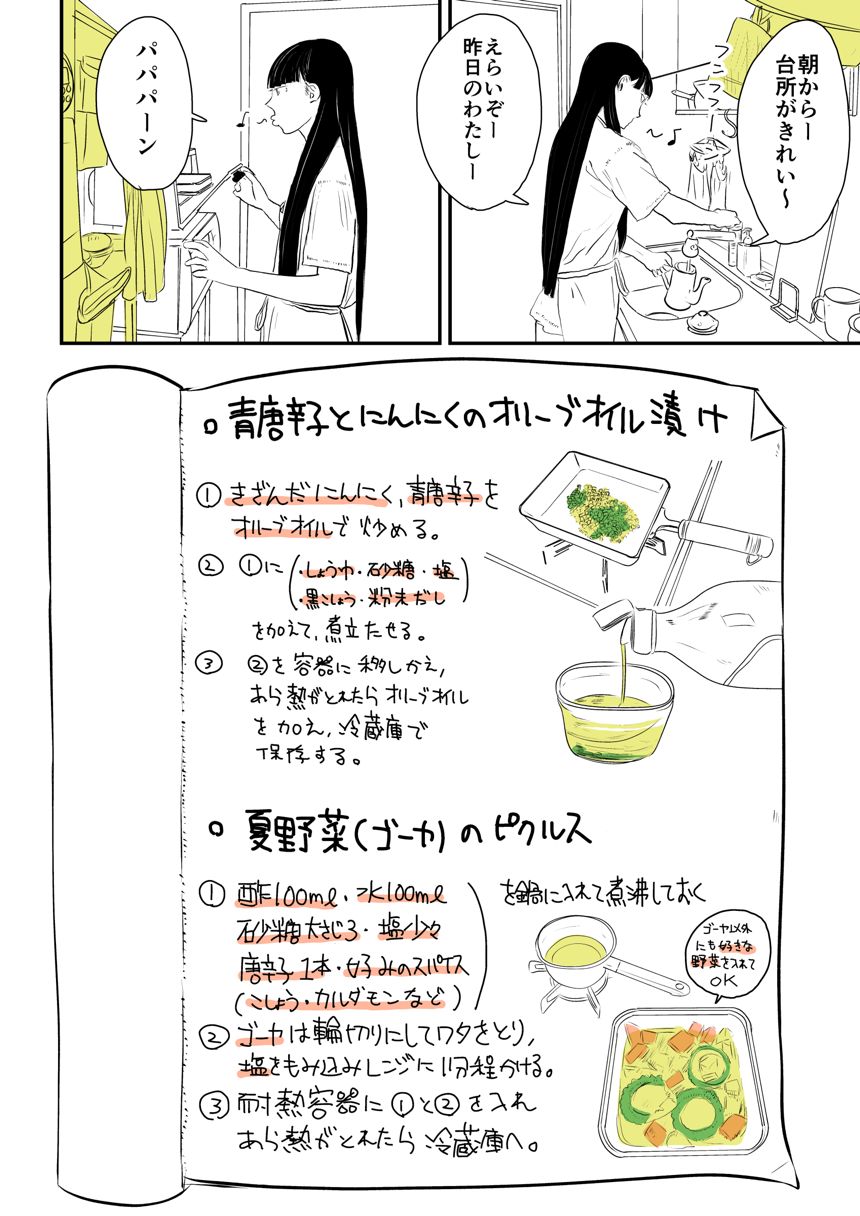 朝からー
台所がきれい〜
フンフフ
えらいぞー
昨日のわたしー
パパパーン
青唐辛子とにんにくのオリーブオイル漬け
① きざんだにんにく,青唐辛子を
オリーブオイルで炒める。
② ①に(・しょうゆ・砂糖・塩
・黒こしょう・粉末だし)
を加えて,煮立たせる。
③ ②を容器に移しかえ,
あら熱がとれたらオリーブオイル
を加え,冷蔵庫で
保存する。
夏野菜(ゴーヤ)のピクルス
① 酢100ml・水100ml
砂糖大さじ3・塩少々
唐辛子1本・好みのスパイス
(こしょう・カルダモンなど)
を鍋に入れて煮沸しておく
ゴーヤ以外
にも好きな
野菜を入れて
OK
② ゴーヤは輪切りにしてワタをとり,
塩をもみ込みレンジに1分程かける。
③ 耐熱容器に①と②を入れ
あら熱がとれたら冷蔵庫へ。